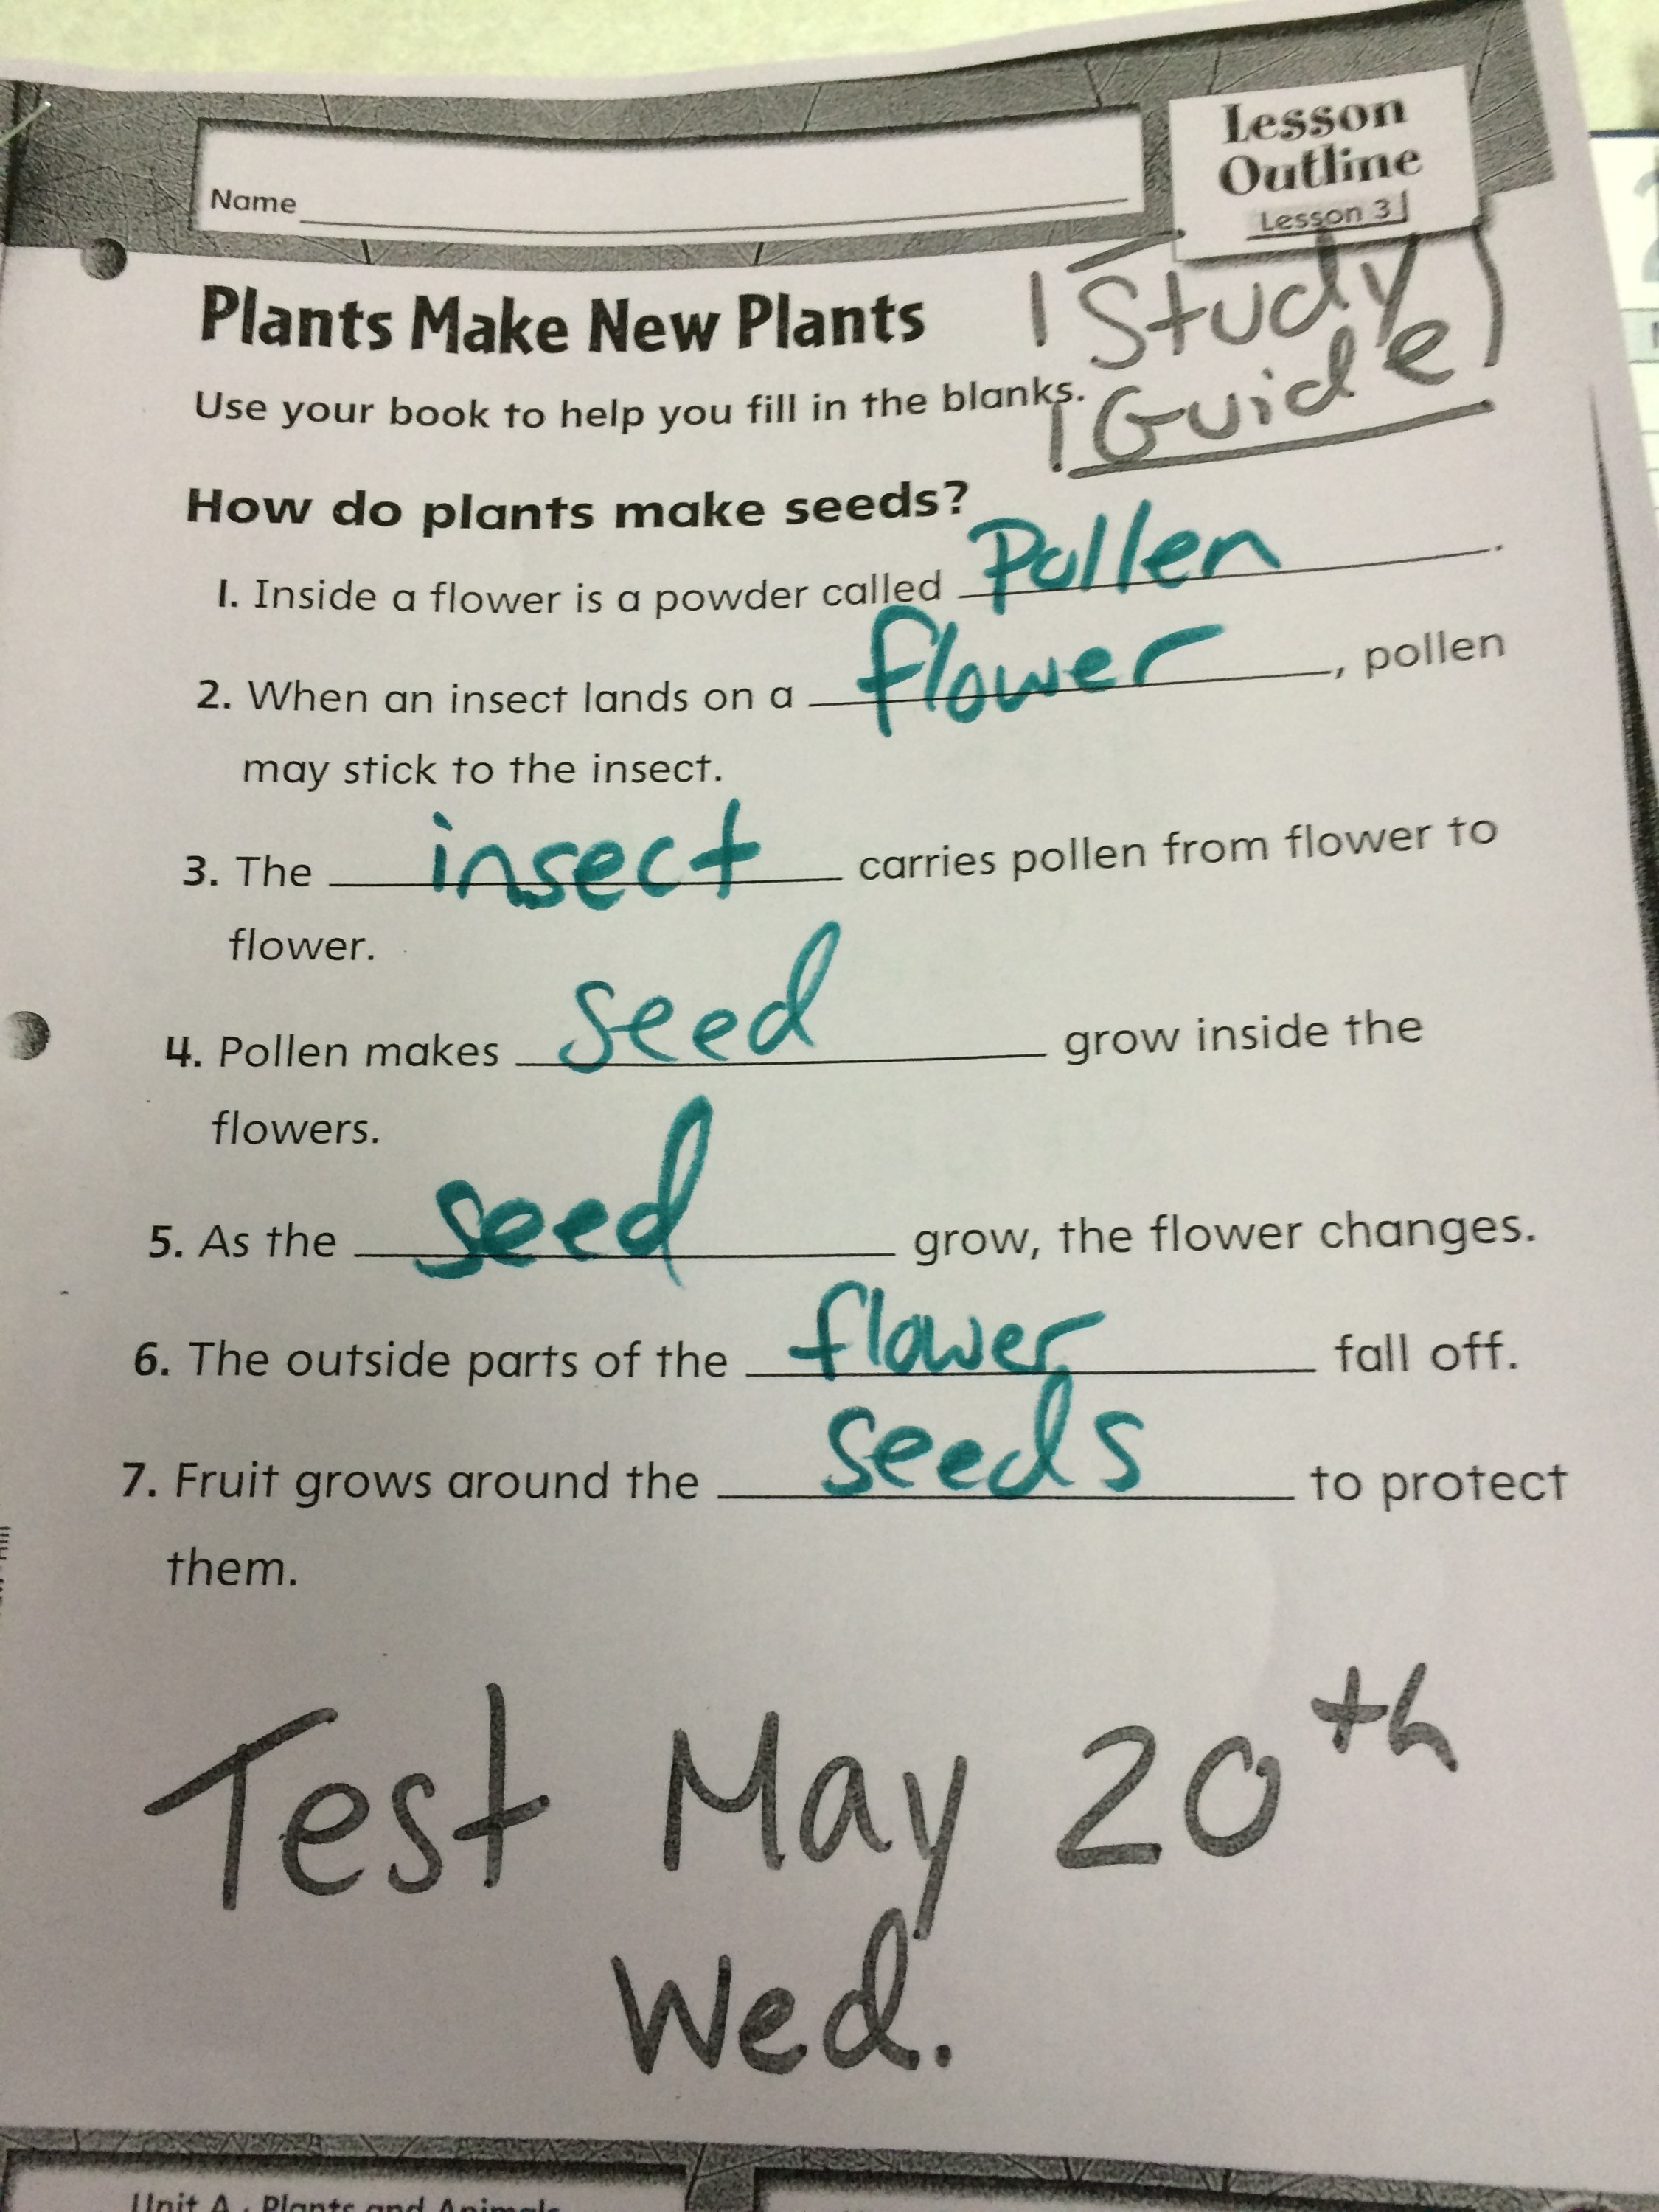 Name
Lesson
Outline
Lesson 3
Plants Make New Plants
Study
Guide
Use your book to help you fill in the blanks.
How do plants make seeds?
1. Inside a flower is a powder called Pollen.
2. When an insect lands on a flower, pollen
may stick to the insect.
3. The insect carries pollen from flower to
flower.
4. Pollen makes seed grow inside the
flowers.
5. As the seed grow, the flower changes.
6. The outside parts of the flower fall off.
7. Fruit grows around the seeds to protect
them.
Test May 20th
Wed.
Unit A · Plants and Animals